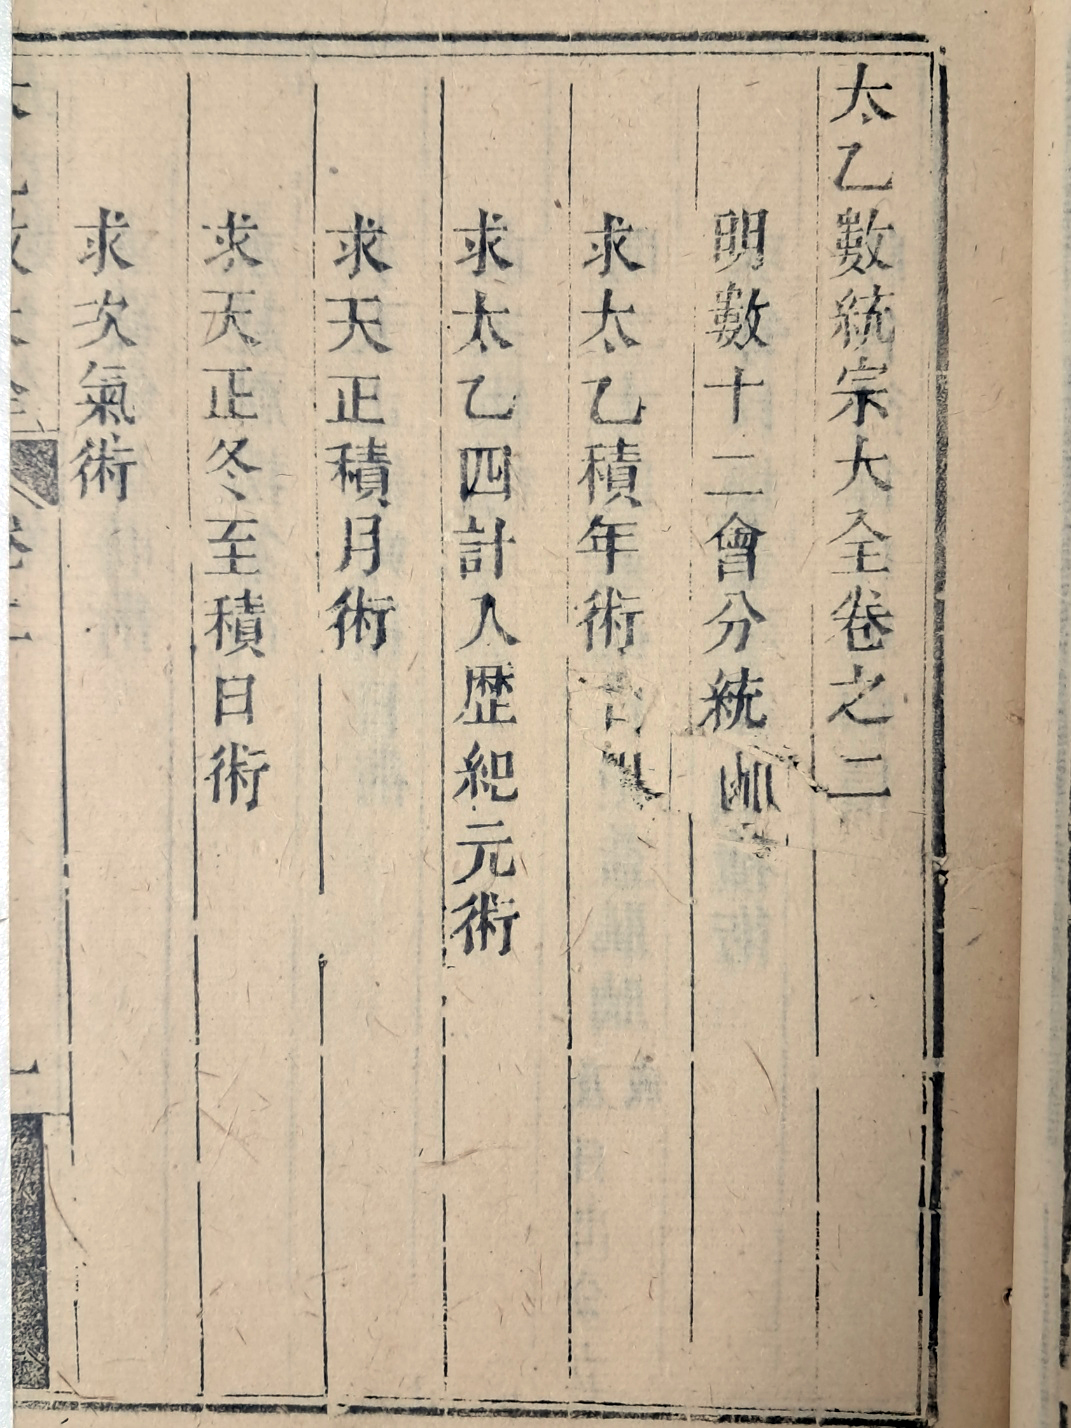 太乙數統宗大全卷之二
明數十二會分統
求太乙積年術
求太乙四計入歷紀元術
求天正積月術
求天正冬至積日術
求次氣術